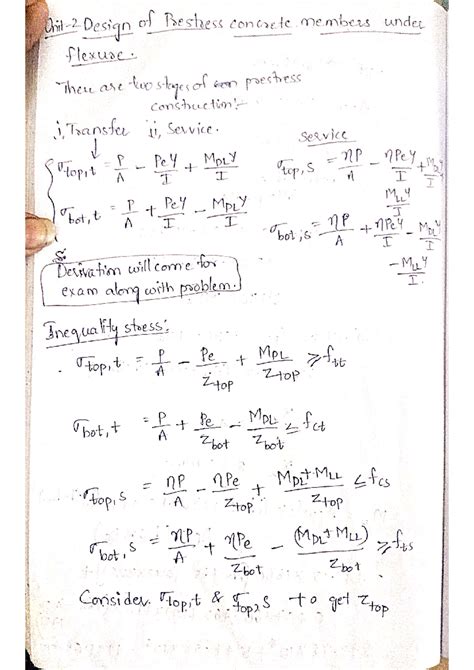 Unit-2 Design of Prestress concrete members under
flexure.
There are two stages of prestress
construction:-
i, Transfer ii, Service.
service
σtop,t = P/A - PeY/I + MDLY/I
σtop,s = ηP/A - ηPeY/I + MDLY/I
MLLY/I
σbot,t = P/A + PeY/I - MDLY/I
σbot,s = ηP/A + ηPeY/I - MDLY/I
- MLLY/I
Derivation will come for
exam along with problem.
Inequality stress:
σtop,t = P/A - Pe/Ztop + MDL/Ztop ≥ ftt
σbot,t = P/A + Pe/Zbot - MDL/Zbot ≤ fct
σtop,s = ηP/A - ηPe/Ztop + MDL+MLL/Ztop ≤ fcs
σbot,s = ηP/A + ηPe/Zbot - (MDL+MLL)/Zbot ≥ fts
Consider σtop,t & σtop,s to get Ztop